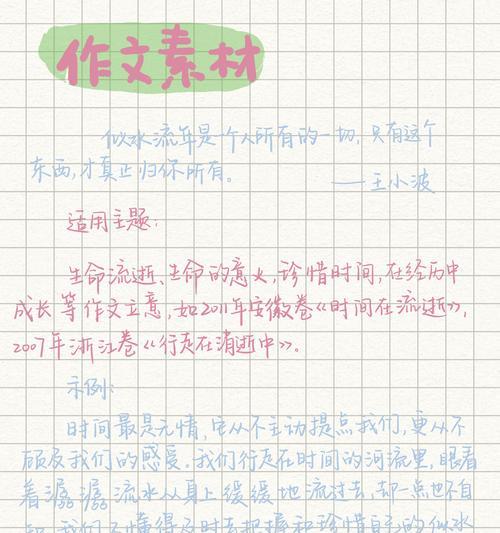 作文素材
似水流年是一个人所有的一切，只有这个
东西，才真正归你所有。
——王小波
适用主题：
生命流逝、生命的意义，珍惜时间，在经历中
成长等作文立意，如2011年安徽卷《时间在流逝》，
2007年浙江卷《行走在消逝中》。
示例：
时间最是无情，它从不主动提点我们，更从不
顾及我们的感受。我们行走在时间的河流里，眼看
着潺潺流水从身上缓缓地流过去，却一点也不自
知，我们不懂得及时去把握和珍惜自己的似水